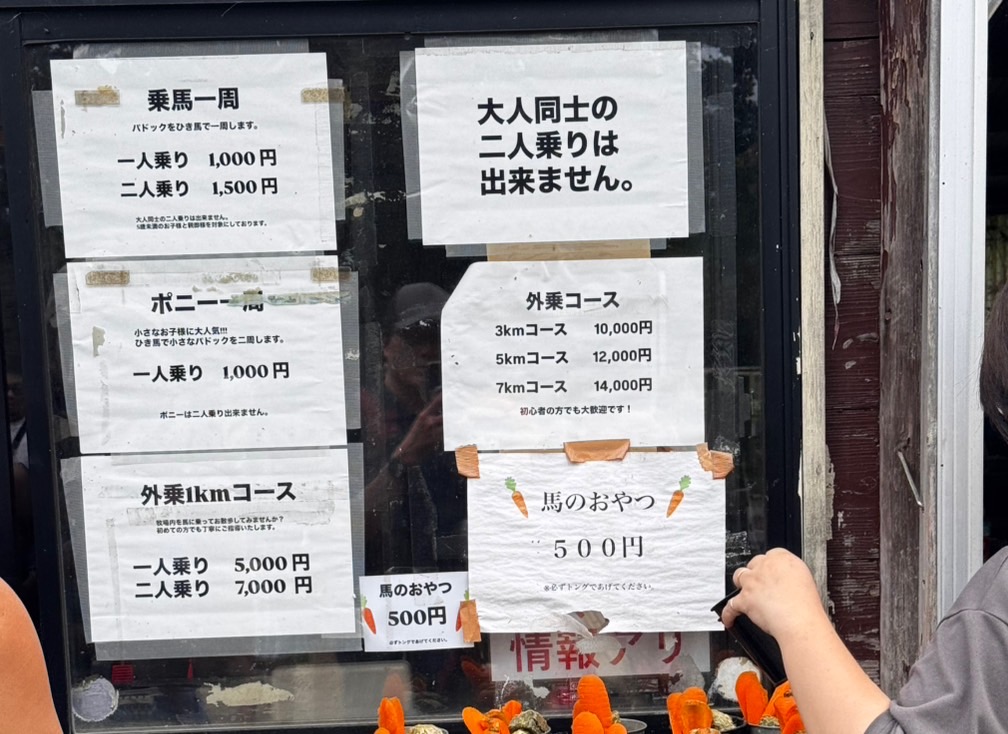 乗馬一周
パドックをひき馬で一周します。
一人乗り 1,000円
二人乗り 1,500円
大人同士の二人乗りは出来ません。
5歳未満のお子様と親御様を対象にしております。
ポニー一周
小さなお子様に大人気!!!
ひき馬で小さなパドックを二周します。
一人乗り 1,000円
ポニーは二人乗り出来ません。
外乗1kmコース
牧場内を馬に乗ってお散歩してみませんか?
初めての方でも丁寧にご指導いたします。
一人乗り 5,000円
二人乗り 7,000円
馬のおやつ
500円
※必ずトングであげてください。
大人同士の
二人乗りは
出来ません。
外乗コース
3kmコース 10,000円
5kmコース 12,000円
7kmコース 14,000円
初心者の方でも大歓迎です!
馬のおやつ
500円
※必ずトングであげてください。
情報アリ